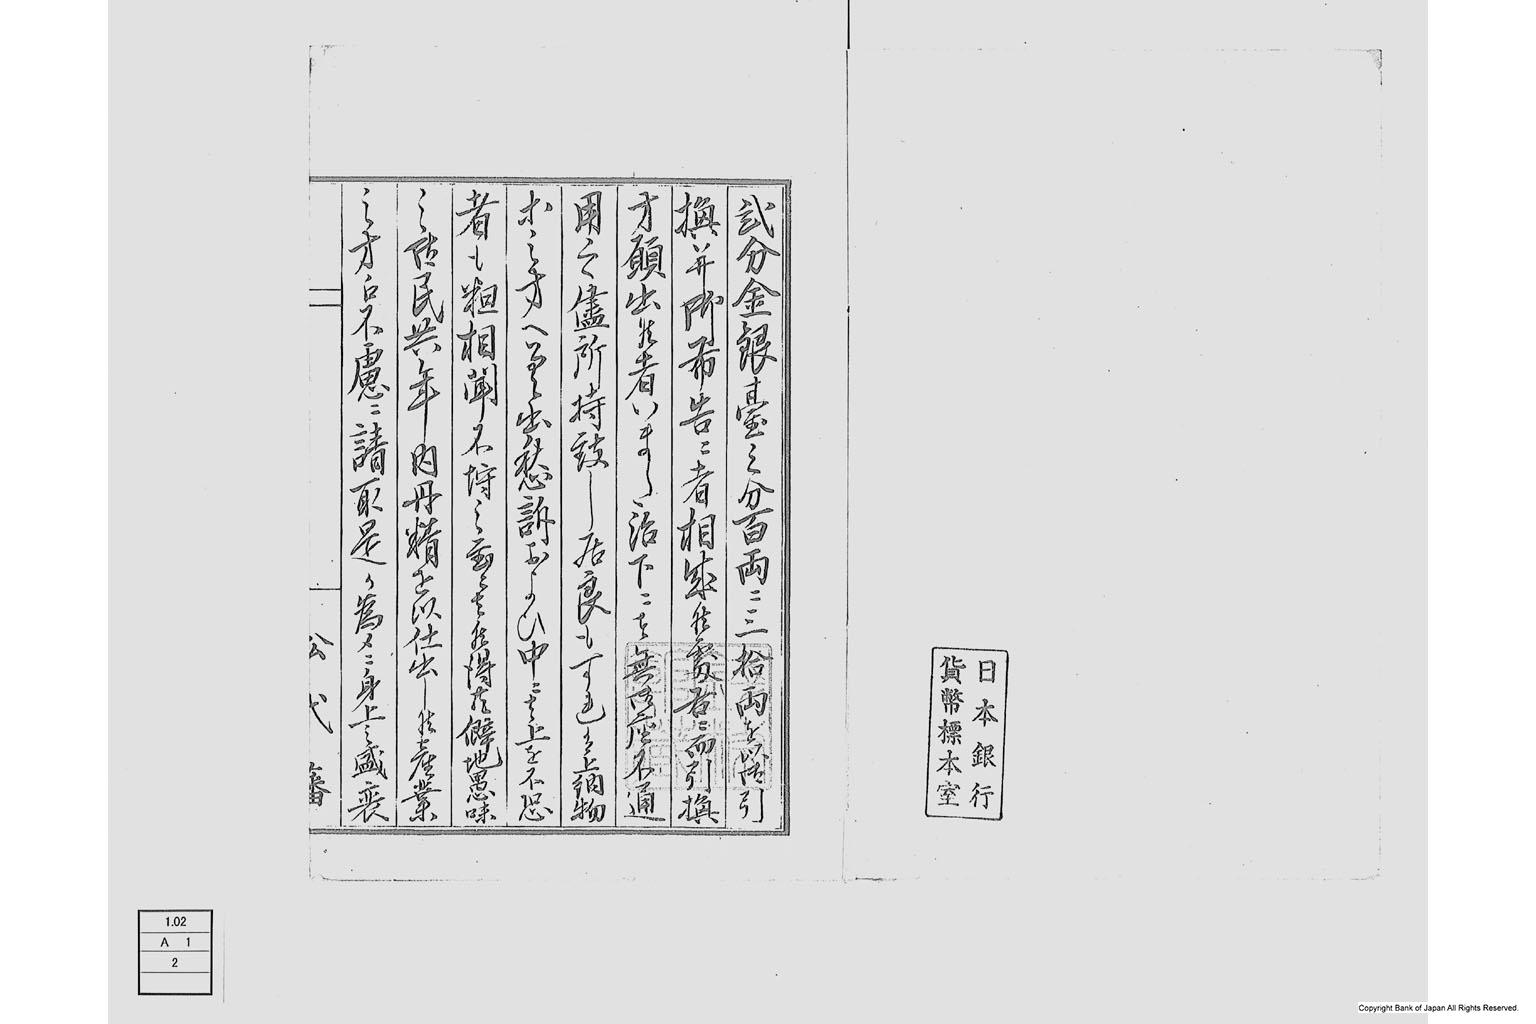 日本銀行
貨幣標本室
弐分金銀臺之分百両ニ三拾両を以御引
換御布告ニ者相成候處右ニ而引換
方願出候者いまた治下ニ者無御座不通
用之儘所持致し居良もすれハ上納物
等之方へ差出愁訴およひ中ニ者上を不恐
者も粗相聞不埒之至ニ者候得共僻地愚昧
之佐民共年内丹精を以仕出し候産業
之方ニ不慮ニ請取是か為メニ身上之盛衰
松代藩
1.02
A 1
2
Copyright Bank of Japan All Rights Reserved.